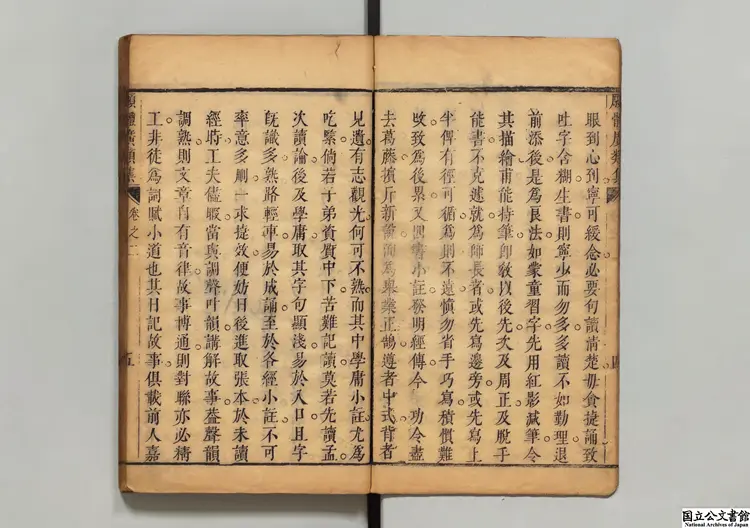 眼到心到寧可緩念必要句讀清楚毋貪捷誦致
吐字含糊生書則寧少而勿多多讀不如勤理退
前添後是爲良法如蒙童習字先用紅影減筆令
其描繪甫能持筆即敎以後先次及周正及脫手
能書不克逑就爲師長者或先寫邊旁或先寫上
半俾有徑可循爲則不遠慎勿省手巧寫積慣難
改致爲後累又四書小註發明經傳今 功令盡
去葛藤擯斥新 爲舉業正鵠遵者中式背者
見遺有志觀光何可不熟而其中學庸小註尤爲
吃緊倘若子弟資質中下苦難記讀莫若先讀孟
次讀論後及學庸取其字句顯淺易於入口且字
旣識多熟路輕車易於成誦至於各經小註不可
率意多刪一求捷效便妨日後進取張本於未讀
經時工夫儘暇當與調聲叶韻講解故事葢聲韻
調熟則文章自有音律故事博通則對聯亦必精
工非徒爲詞賦小道也其日記故事俱載前人嘉
卷之二
五
国立公文書館
National Archives of Japan